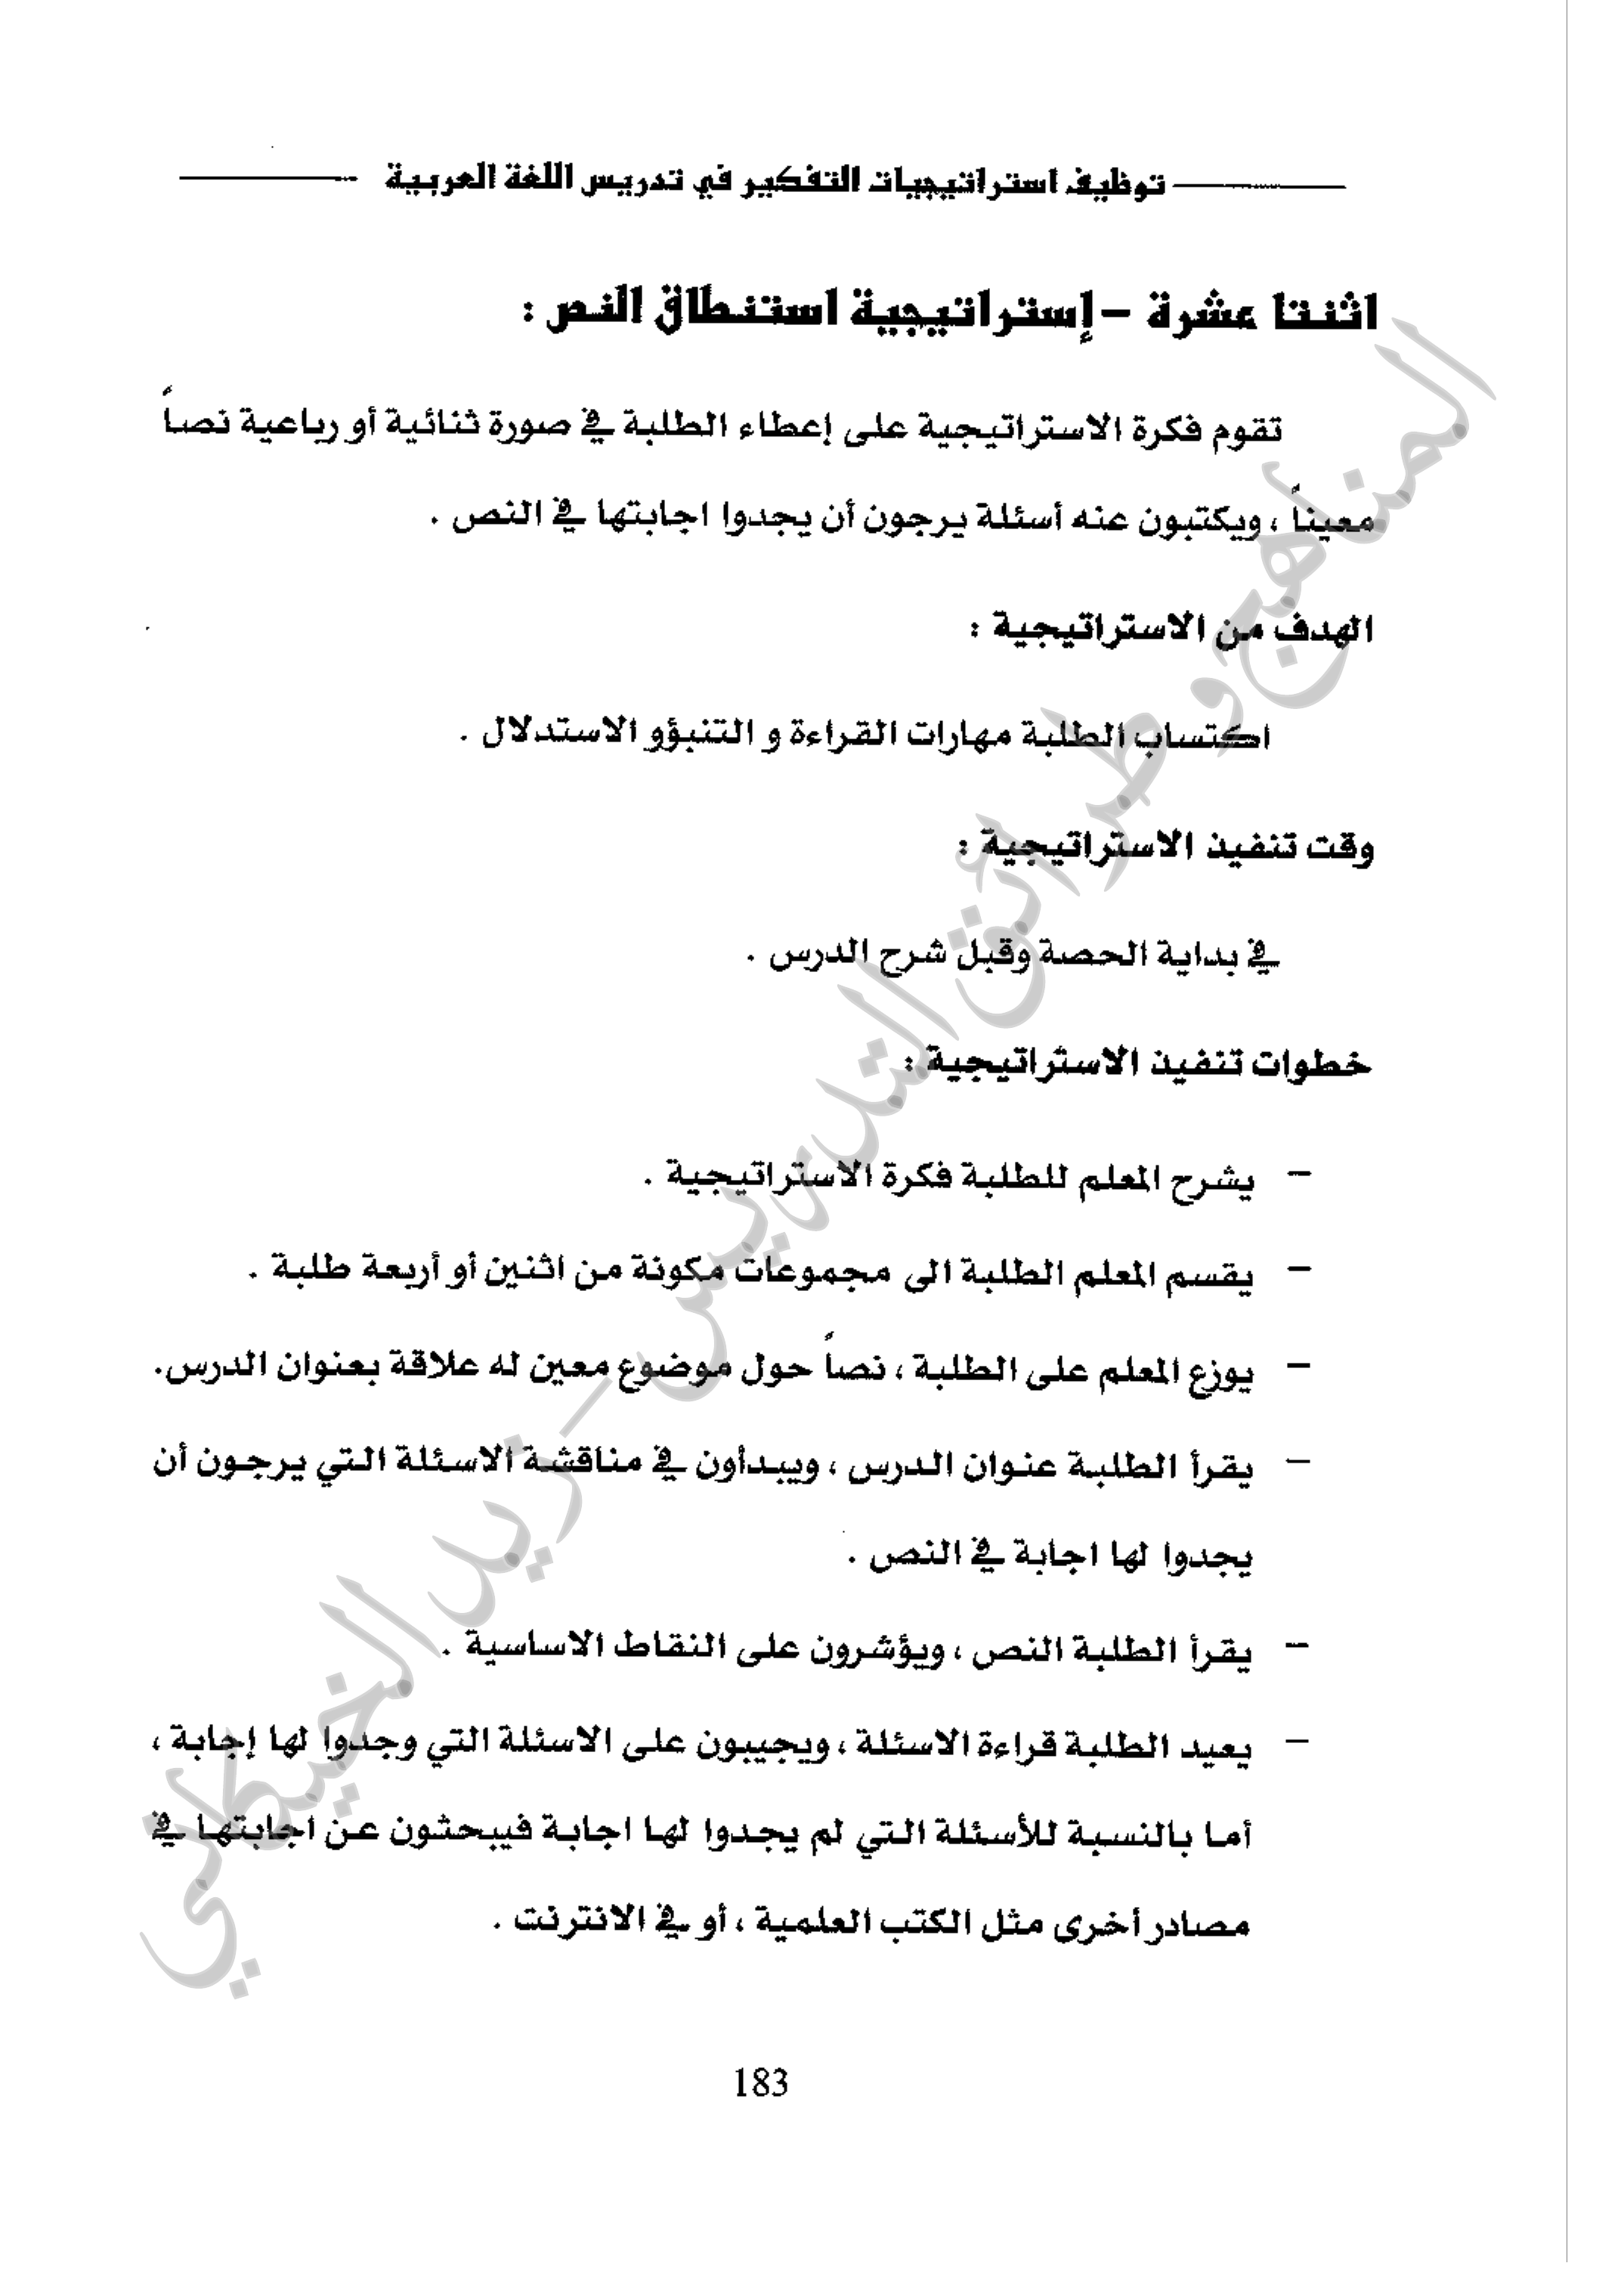 توظيف استراتيجيات التفكير في تدريس اللغة العربية
اثنتا عشرة – إستراتيجية استنطاق النص :
تقوم فكرة الاستراتيجية على إعطاء الطلبة في صورة ثنائية أو رباعية نصاً
معيناً ، ويكتبون عنه أسئلة يرجون أن يجدوا اجابتها في النص .
الهدف من الاستراتيجية :
اكتساب الطلبة مهارات القراءة و التنبؤو الاستدلال .
وقت تنفيذ الاستراتيجية :
في بداية الحصة وقبل شرح الدرس .
خطوات تنفيذ الاستراتيجية :
– يشرح المعلم للطلبة فكرة الاستراتيجية .
– يقسم المعلم الطلبة الى مجموعات مكونة من اثنين أو أربعة طلبة .
– يوزع المعلم على الطلبة ، نصاً حول موضوع معين له علاقة بعنوان الدرس.
– يقرأ الطلبة عنوان الدرس ، ويبدأون في مناقشة الاسئلة التي يرجون أن
يجدوا لها اجابة في النص .
– يقرأ الطلبة النص ، ويؤشرون على النقاط الاساسية .
– يعيد الطلبة قراءة الاسئلة ، ويجيبون على الاسئلة التي وجدوا لها إجابة ،
أما بالنسبة للأسئلة التي لم يجدوا لها اجابة فيبحثون عن اجابتها في
مصادر أخرى مثل الكتب العلمية ، أو في الانترنت .
183
المناهج وطرائق التدريس – زيد الخيكاني